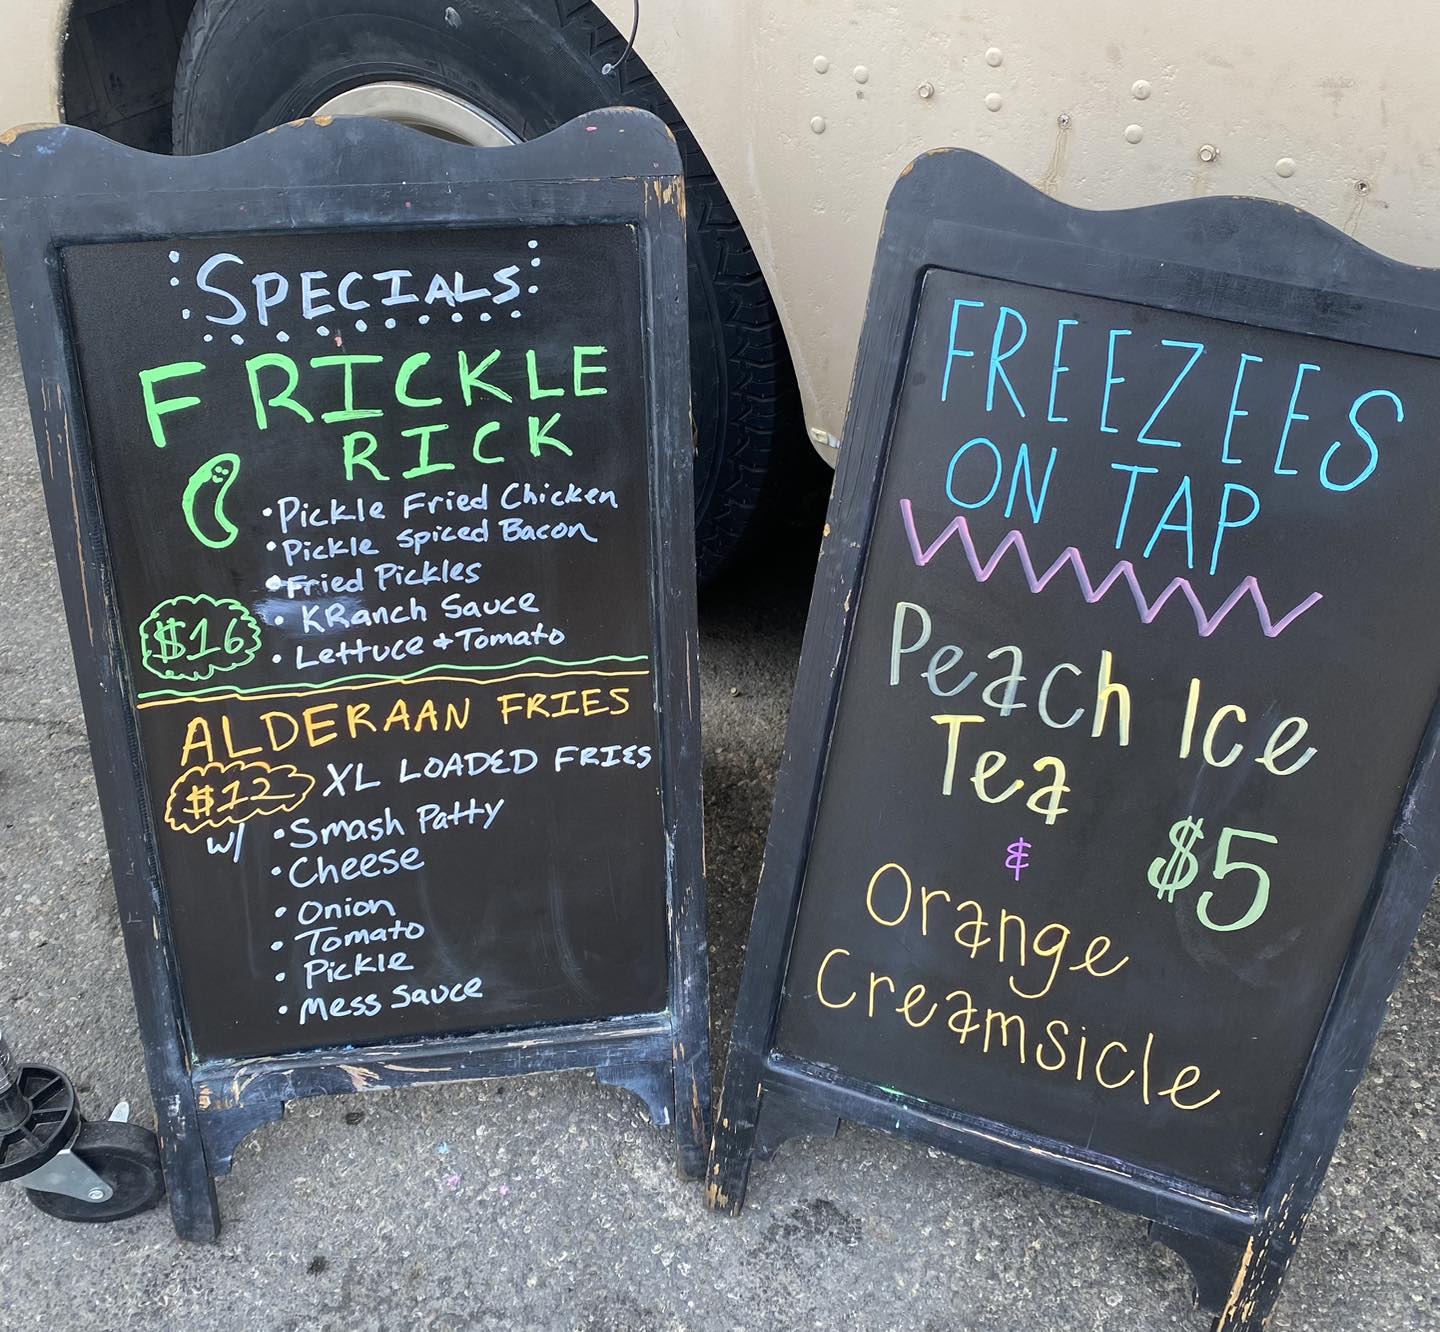 SPECIALS
FRICKLE
RICK
• Pickle Fried Chicken
• Pickle Spiced Bacon
• Fried Pickles
• KRanch Sauce
$16
• Lettuce + Tomato
ALDERAAN FRIES
$12 XL LOADED FRIES
w/ • Smash Patty
• Cheese
• Onion
• Tomato
• Pickle
• Mess Sauce
FREEZEES
ON TAP
Peach Ice
Tea
& $5
Orange
Creamsicle